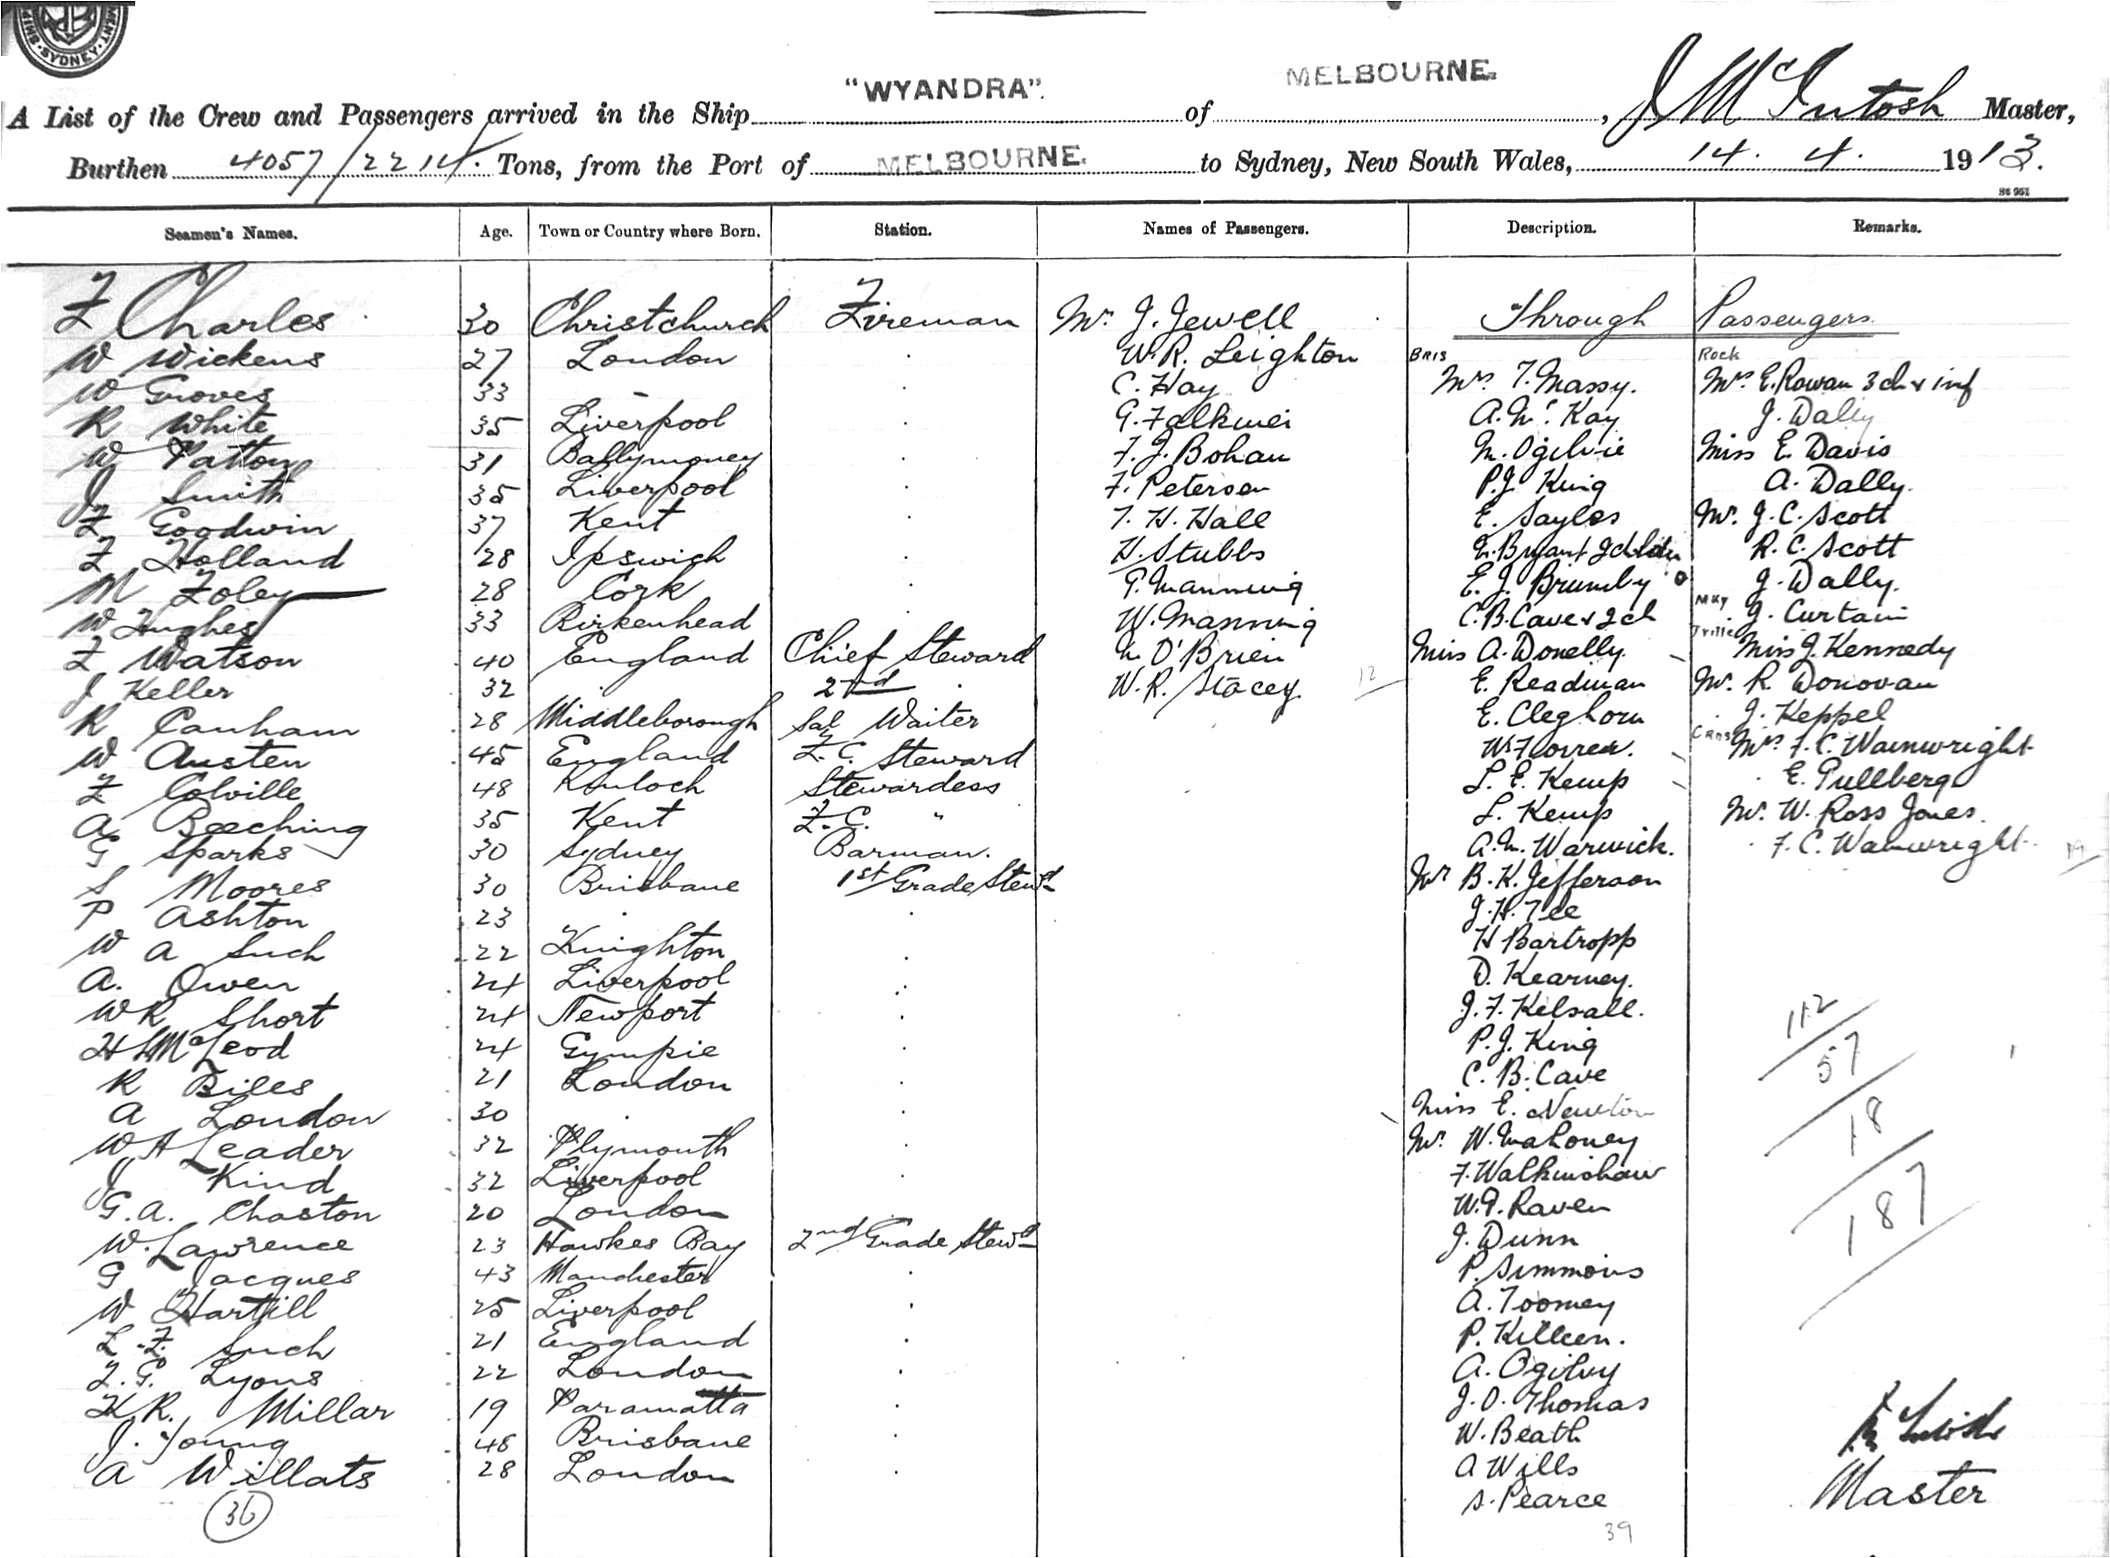 SYDNEY
"WYANDRA". MELBOURNE.
A List of the Crew and Passengers arrived in the Ship of , J McIntosh Master,
Burthen 4057/2214. Tons, from the Port of MELBOURNE. to Sydney, New South Wales, 14. 4. 1913.
St 951
Seamen's Names. Age. Town or Country where Born. Station. Names of Passengers. Description. Remarks.
F Charles 30 Christchurch Fireman Mr. J. Jewell Through Passengers
W Wickens 27 London . W. R. Leighton BRIS Rock
W Groves 33 – . C. Hay Mrs T. Massy. Mrs E. Rowan 3 ch & inf
R White 35 Liverpool . G. Falkiner A. Mc Kay J. Dally
W Patton 31 Ballymoney . F. J. Bohan M. Ogilvie Miss E. Davis
J Smith 35 Liverpool . F. Peterson P. J. King A. Dally.
F Goodwin 37 Kent . T. H. Hall E. Sayles Mr. J. C. Scott
F Holland 28 Ipswich . H. Stubbs Bryant 2 R. C. Scott
M Foley 28 Cork . Manning E. J. Brumby J. Dally.
W Hughes 33 Birkenhead . W. Manning C. B. Cave & 2 ch MKY J. Curtain
F Watson 40 England Chief Steward O'Brien Miss A. Donelly. Tville Miss J. Kennedy
J Keller 32 2nd . W. R. Stacey. 12 E. Readman Mr. R. Donovan
R Canham 28 Middleborough Sal Waiter E. Cleghorn J. Keppel
W Austen 45 England F. C. Steward W. Cans Mrs F. C. Wainwright
F Colville 48 Kinloch Stewardess L. E. Kemp E. Pullberg
A Beeching 35 Kent F. C. " L. Kemp Mr. W. Ross Jones.
G Sparks 30 Sydney Barman. A. M. Warwick. F. C. Wainwright
S Moores 30 Brisbane 1st Grade Stewd Mr B. K. Jefferson
P Ashton 23 . . J. H. Tee
W A Such 22 Knighton . H Bartropp
A. Owen 24 Liverpool . D. Kearney.
W R Short 24 Newport . J. F. Kelsall. 112
H L McLeod 24 Gympie . P. J. King 57
R Biles 21 London . C. B. Cave
A London 30 . . Miss E. Newton 18
W H Leader 32 Plymouth . Mr. W. Mahoney
J Kind 32 Liverpool . F. Walkinshaw
G. A. Chaston 20 London W. P. Raven 187
W. Lawrence 23 Hawkes Bay 2nd Grade Stewd J. Dunn
G Jacques 43 Manchester . P. Simmons
W Hartill 25 Liverpool . A. Toomey
L. F. Such 21 England . P. Killeen.
F. G. Lyons 22 London . A. Ogilvy
K R. Millar 19 Paramatta . J. O. Thomas
J. Young 48 Brisbane . W. Beath
A Willats 28 London . A Wills
36 S. Pearce Master
39